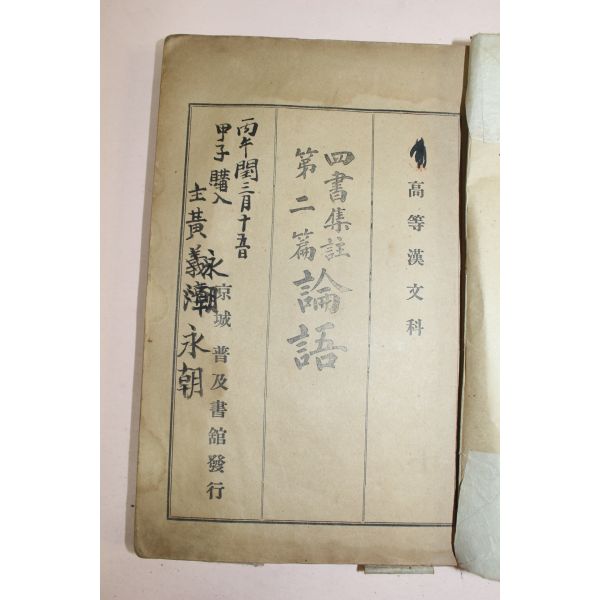 高等漢文科
四書集註
第二篇
論語
京城 普及書舘發行
丙午閏三月十五日
甲子 購入
主黃義
永潮
永朝